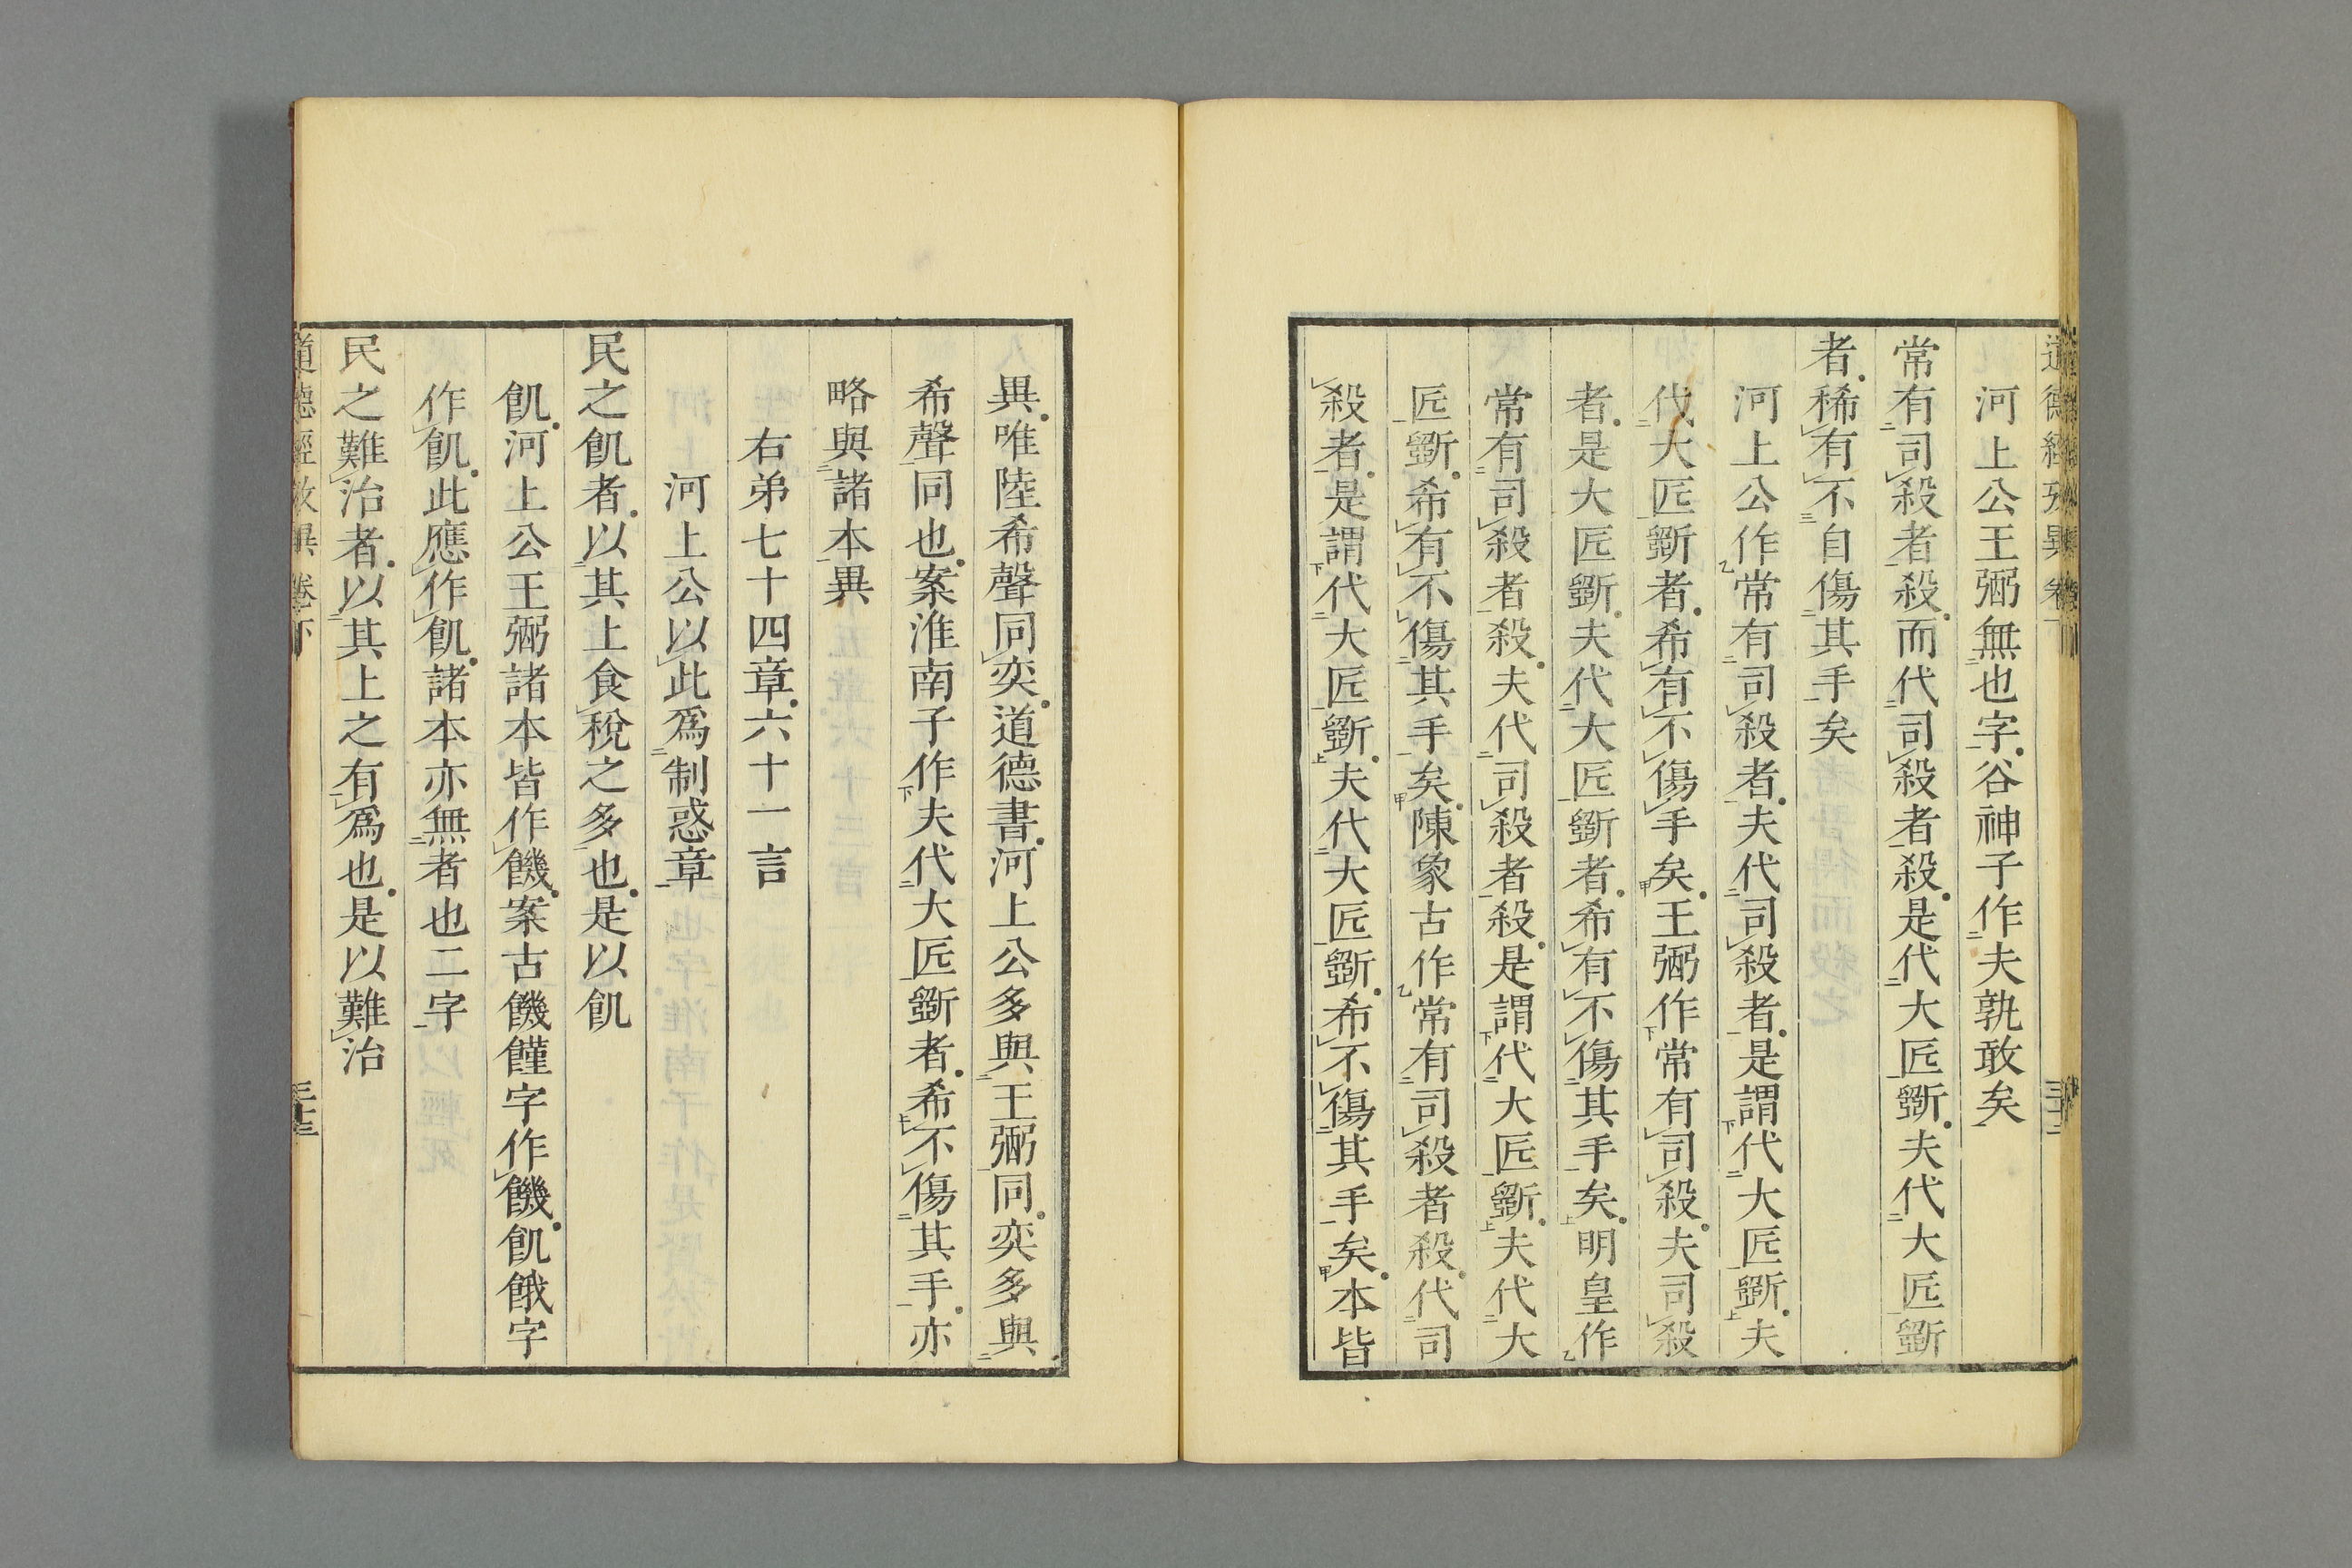 河上公王弼無也字谷神子作夫孰敢矣
常有司殺者殺而代司殺者殺是代大匠斵夫代大匠斵
者稀有不自傷其手矣
河上公作常有司殺者夫代司殺者是謂代大匠斵夫
代大匠斵者希有不傷手矣王弼作常有司殺夫司殺
者是大匠斵夫代大匠斵者希有不傷其手矣明皇作
常有司殺者殺夫代司殺者殺是謂代大匠斵夫代大
匠斵希有不傷其手矣陳象古作常有司殺者殺代司
殺者是謂代大匠斵夫代大匠斵希不傷其手矣本皆
異唯陸希聲同奕道德書河上公多與王弼同奕多與
希聲同也案淮南子作夫代大匠斵者希不傷其手亦
略與諸本異
右弟七十四章六十一言
河上公以此爲制惑章
民之飢者以其上食稅之多也是以飢
飢河上公王弼諸本皆作饑案古饑饉字作饑飢餓字
作飢此應作飢諸本亦無者也二字
民之難治者以其上之有爲也是以難治
道德經攷異卷下 三十三